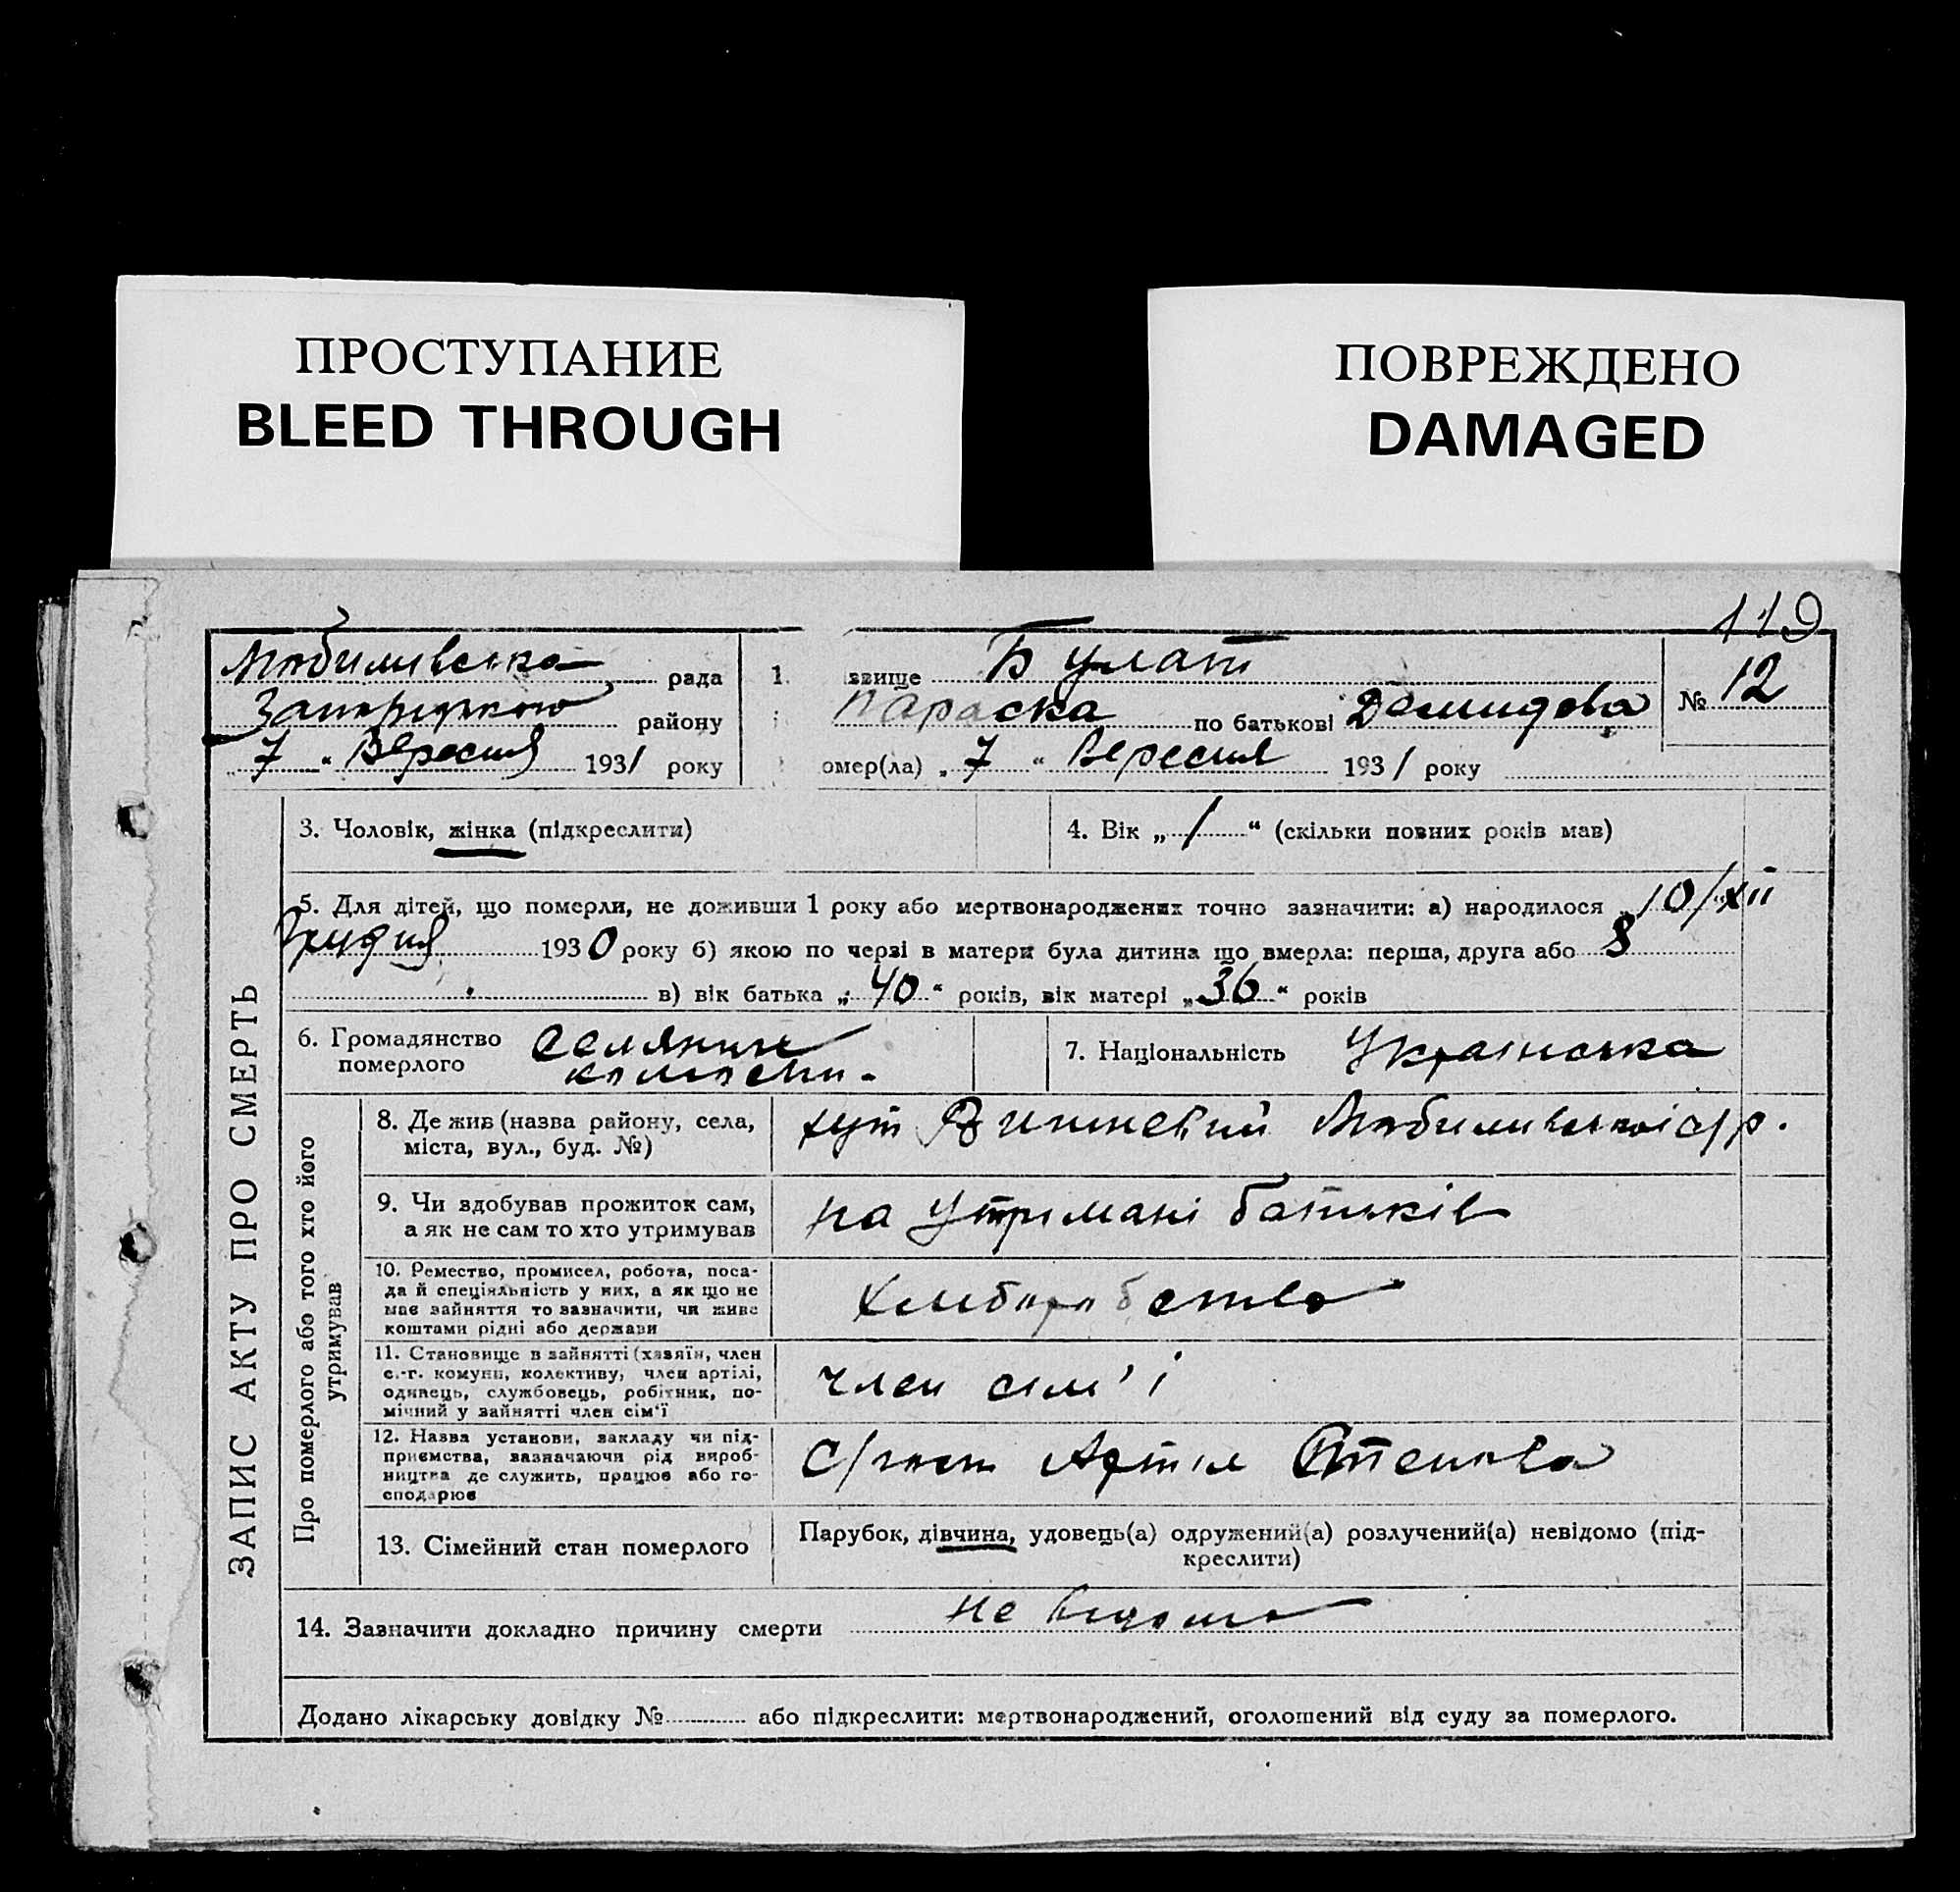 ПРОСТУПАНИЕ
BLEED THROUGH
ПОВРЕЖДЕНО
DAMAGED
119
рада
району
„ 7 “ Вересня 1931 року
1. звище Булат
Параска по батькові Демидова
омер(ла) „ 7 “ Вересня 1931 року
№ 12
ЗАПИС АКТУ ПРО СМЕРТЬ
3. Чоловік, жінка (підкреслити)
4. Вік „ 1 “ (скільки повних років мав)
5. Для дітей, що померли, не доживши 1 року або мертвонароджених точно зазначити: а) народилося „ 10/XII
Грудня 1930 року б) якою по черзі в матери була дитина що вмерла: перша, друга або 8
в) вік батька „ 40 “ років, вік матері „ 36 “ років
6. Громадянство
померлого
Селянин
7. Національність Українська
Про померлого або того хто його
утримував
8. Де жив (назва району, села,
міста, вул., буд. №)
хут с/р.
9. Чи здобував прожиток сам,
а як не сам то хто утримував
на утримані батьків
10. Ремество, промисел, робота, поса-
да й спеціяльність у них, а як що не
має зайняття то зазначити, чи живе
коштами рідні або держави
Хлиборобство
11. Становище в зайнятті (хазяїн, член
с.-г. комуни, колективу, член артілі,
одинець, службовець, робітник, по-
мічний у зайнятті член сім'ї
член сім'ї
12. Назва установи, закладу чи під-
приємства, зазначаючи рід вироб-
ництва де служить, працює або го-
сподарює
С/госп Артіл
13. Сімейний стан померлого
Парубок, дівчина, удовець(а) одружений(а) розлучений(а) невідомо (під-
креслити)
14. Зазначити докладно причину смерти не видомо
Додано лікарську довідку № або підкреслити: мертвонароджений, оголошений від суду за померлого.